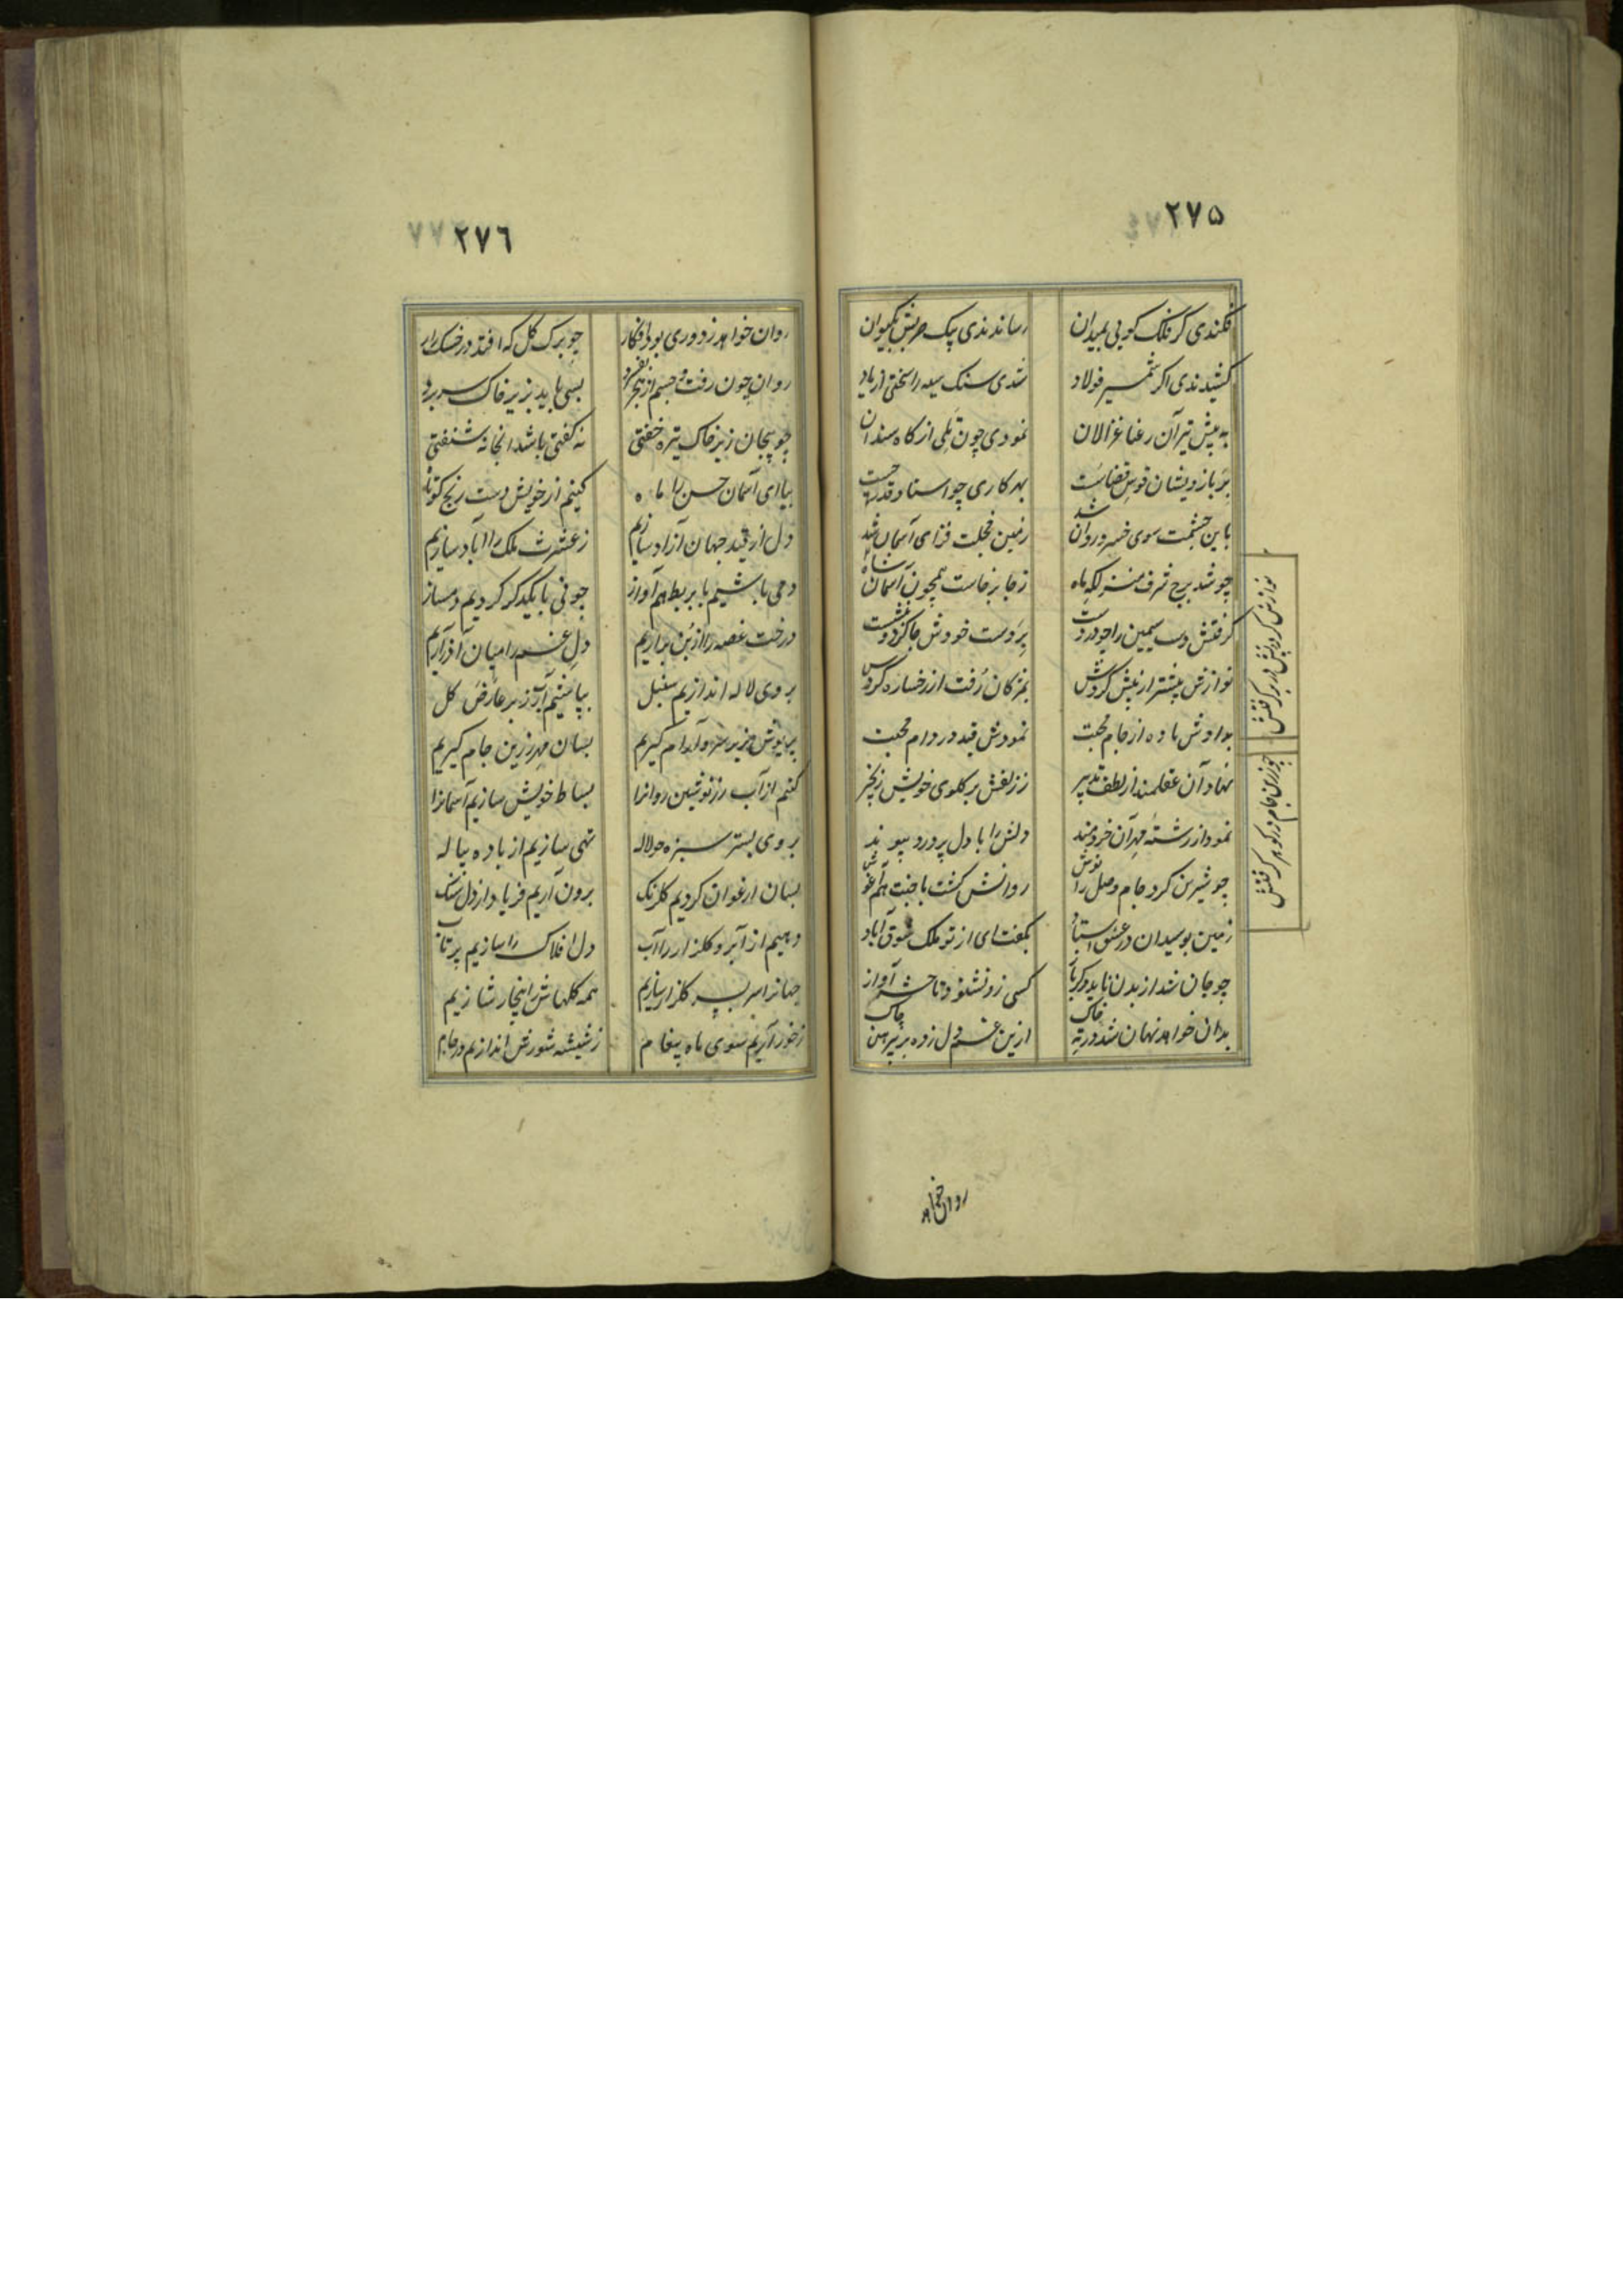 ۲۷۵
فکندی گر فلک گویی بمیدان رساندندی پیک بکیوان
کشیدندی اگر شمشیر فولاد شدی سنک سیه را سختی از یاد
به پیش تیر آن رعنا غزالان نمودی چون تلی از کاه سندان
بر بازویشان قوس قضا بست بهر کاری چو استاد قدر
باین حشمت سوی خسرو روان شد زمین خجلت فزای آسمان شد
چو شد برج شرف منزلکه ماه ز جا برخاست همچون آسمان شاه
گرفتش دست سیمین را چو در دست بر دست خودش جا کرد و بنشست
نوازش بیشتر از پیش کردش بمژکان رفت از رخساره کردش
بدادش باده از جام محبت نمودش قید در دام محبت
نهاد آن عقلمند از لطف تدبیر ز زلفش بر کلوی خویش زنجیر
نمود از رشته مهر آن خردمند دلش را با دل پر درد پیوند
چو شیرین کرد جام وصل را نوش روانش کشت با جنت هم آغوش
زمین بوسیدن در عشق استاد بگفت ای از تو ملک شوق آباد
چو جان شد از بدن ناید دکر باز کسی زو نشنود تا حشر آواز
بدان خواهد نهان شد در ته خاک ازین غم دل زده بر پیرهن چاک
نوازش کرد پیش در بر کرفتش
چو زرین جام در کوهر کرفتش
روان خواهد
۲۷۶
روان خواهد ز دوری بود افکار چو برک کل که افتد در خسک زار
روان چون رفت و جسم از هجر بفسرد بسی باید بزیر خاک سر برد
چو بیجان زیر خاک تیره خفتی نه کفتی باشد آنجا نه شنفتی
بیا ای آسمان حسن را ماه کنیم از خویش دست رنج کوتاه
دل از قید جهان آزاد سازیم ز عشرت ملک را آباد سازیم
دمی باشیم با بربط هم آواز چو نی با یکدکر کردیم دمساز
درخت غصه را از بن براریم دل غم را میان آذر آریم
بروی لاله اندازیم سنبل بپاشیم آب زر بر عارض کل
بپایوش سرو آرام کیریم بسان مهر زرین جام کیریم
کنیم از آب رز نوشین روانرا بساط خویش سازیم آسمانرا
بروی بستر سبزه چو لاله تهی سازیم از باده پیاله
بسان ارغوان کردیم کلرنک برون آریم فریاد از دل سنک
دهیم از آبرو کلزار را آب دل افلاک را سازیم پرتاب
جهانرا سر بسر کلزار سازیم همه کلهاش را بیخار سازیم
ز خور آریم سوی ماه پیغام ز شیشه شورش اندازیم در جام